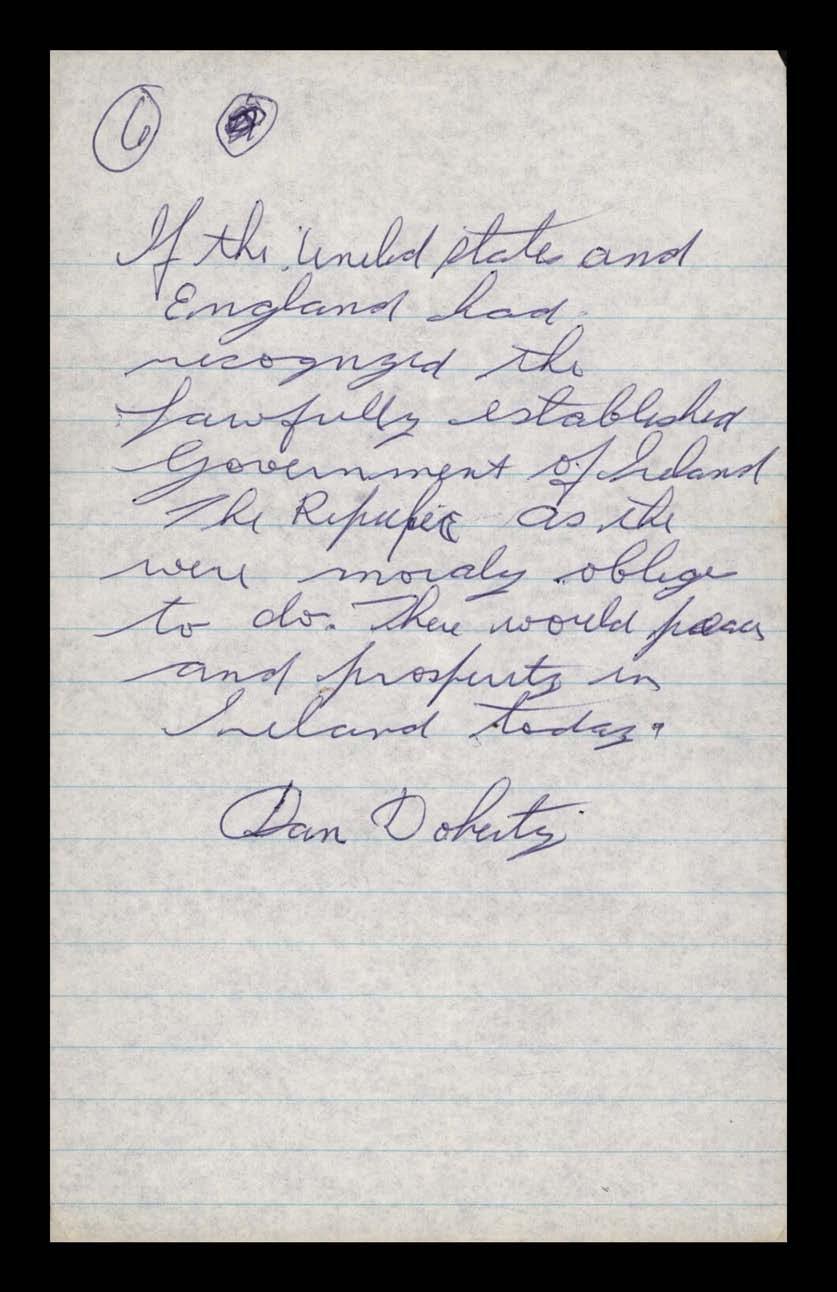 6
If the United states and
England had
recognzed the
Lawfully established
Government of Ireland
The Republic as the
were moraly oblige
to do. There would peace
and prosperity in
Ireland today.
Dan Doherty